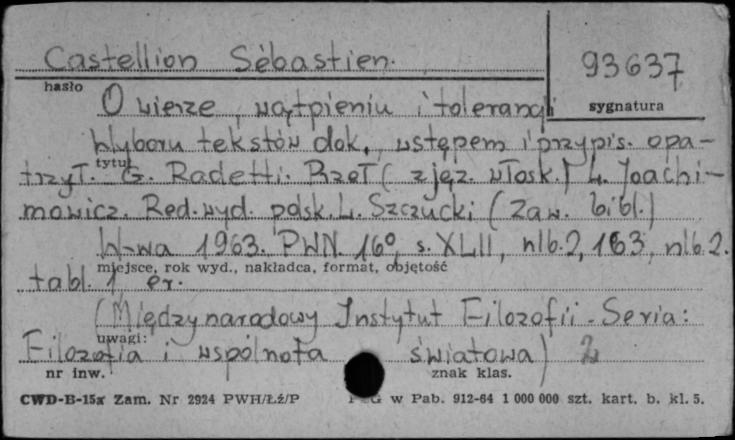 Castellion Sébastien.
93637
hasło
O wierze, wątpieniu i tolerancji
sygnatura
Wyboru tekstów dok., wstępem i przypis. opa-
tytuł
trzył. G. Radetti. Przeł. (z jęz. włosk.) L. Joachi-
mowicz. Red. wyd. polsk. L. Szczucki (Zaw. bibl.)
W-wa 1963. PWN. 16°, s. XLII, nlb. 2, 163, nlb. 2.
miejsce, rok wyd., nakładca, format, objętość
tabl. 1, er.
(Międzynarodowy Instytut Filozofii. Seria:
uwagi:
Filozofia i wspólnota światowa) 2
nr inw. znak klas.
CWD-B-15a Zam. Nr 2924 PWH/Łź/P w Pab. 912-64 1 000 000 szt. kart. b. kl. 5.